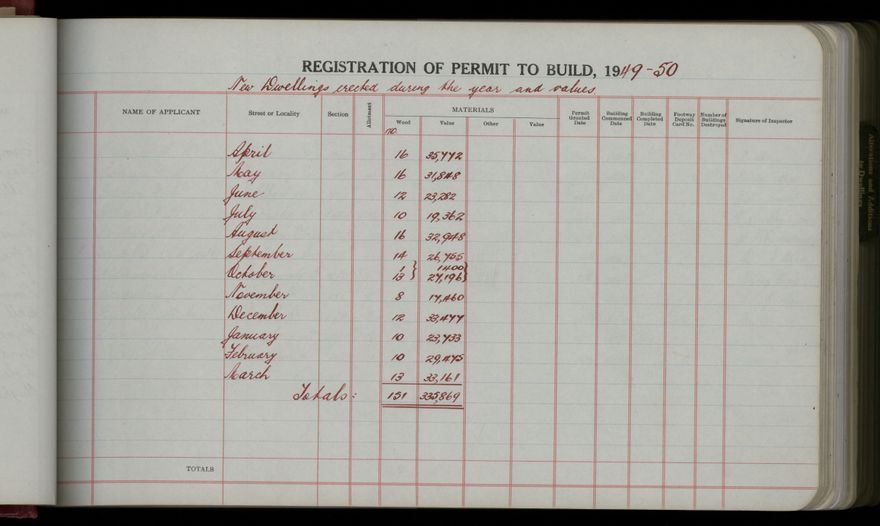 REGISTRATION OF PERMIT TO BUILD, 1949-50
New Dwellings erected during the year and values
NAME OF APPLICANT Street or Locality Section Allotment MATERIALS Permit Granted Date Building Commenced Date Building Completed Date Footway Deposit Card No. Number of Buildings Destroyed Signature of Inspector
Wood Value Other Value
no.
April 16 35,772
May 16 31,848
June 12 23,282
July 10 19,362
August 16 32,948
September 14 26,755
1 1400
October 13 27,196
November 8 17,460
December 12 33,477
January 10 23,733
February 10 29,475
March 13 33,161
Totals: 151 335,869
TOTALS
Alterations and Additions
to Dwellings